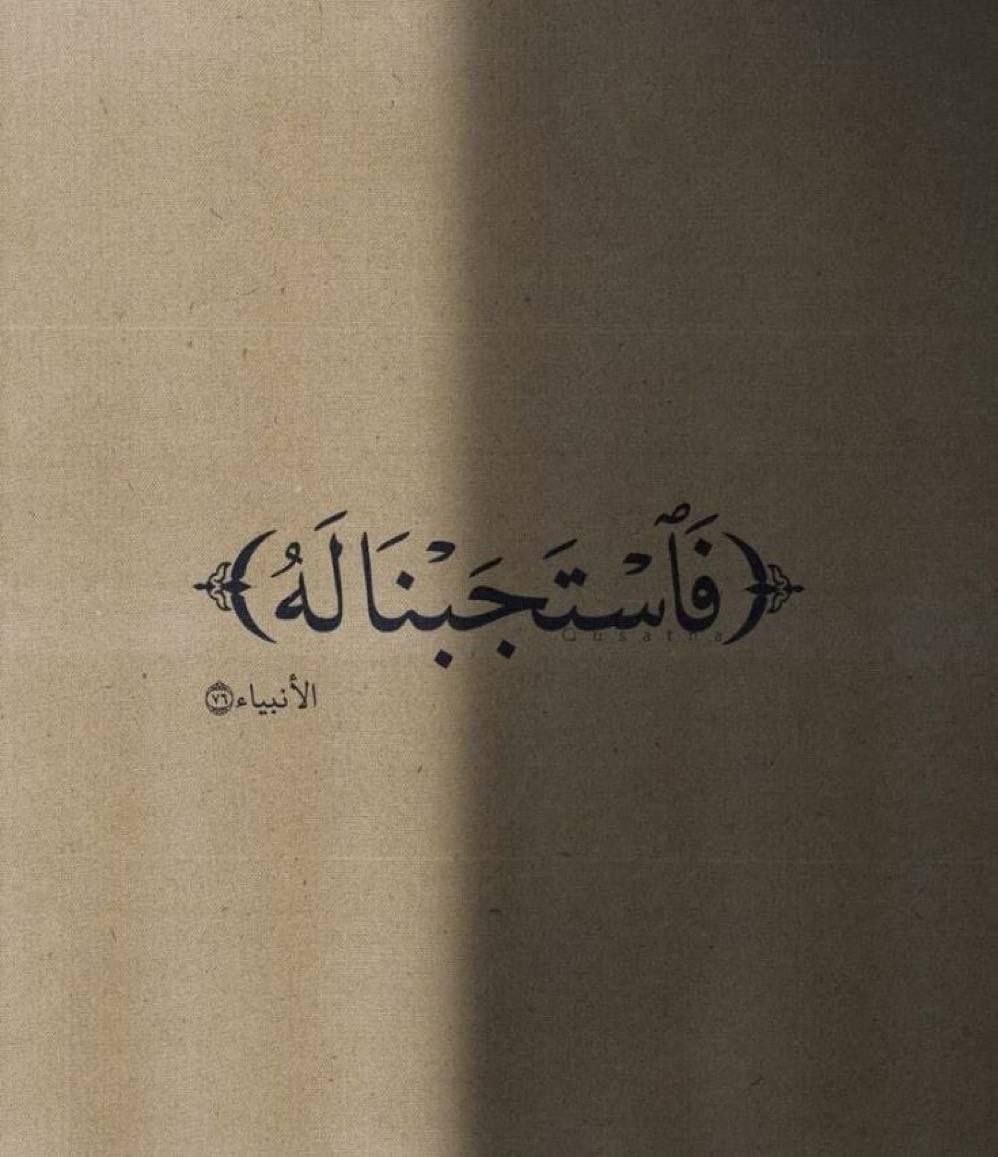 ﴿فَٱسْتَجَبْنَا لَهُ﴾
Qusatna
الأنبياء ٧٦